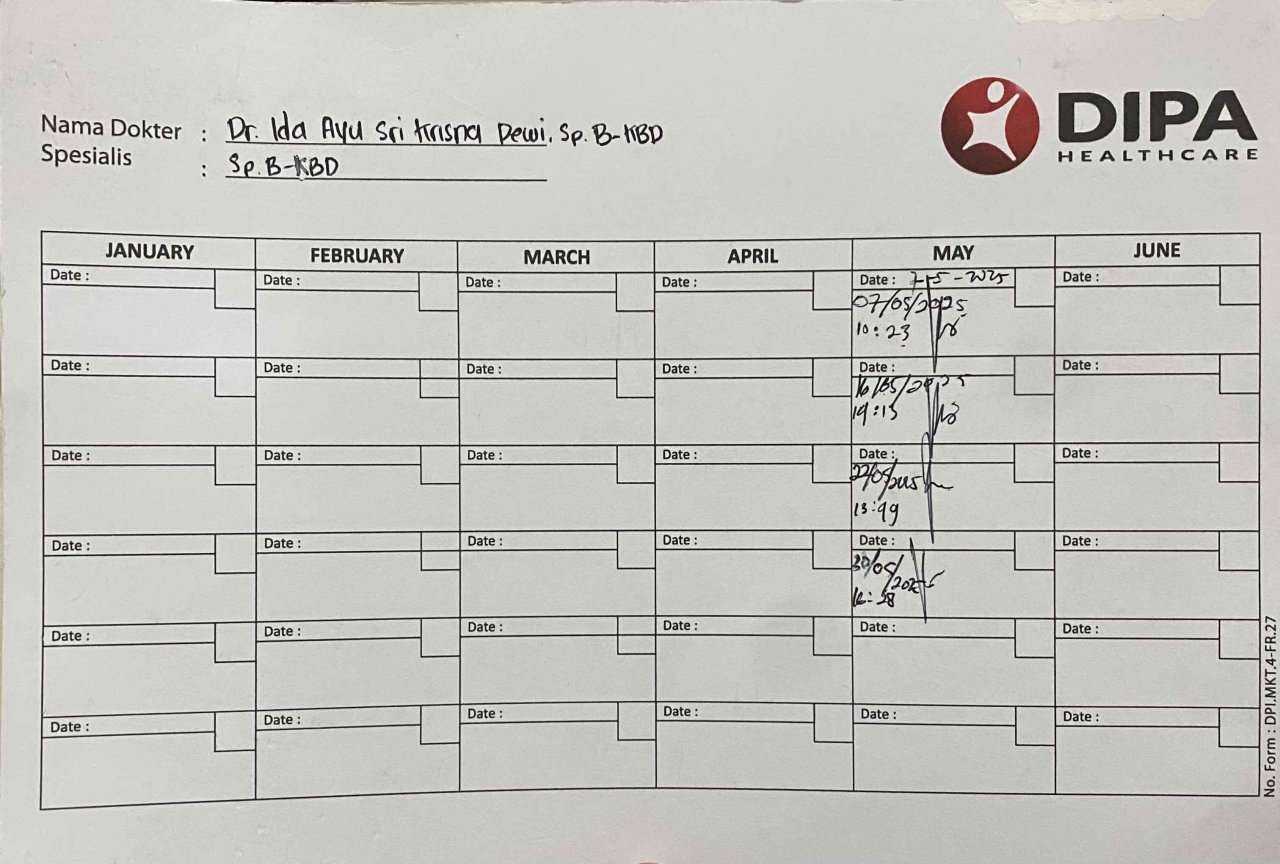 DIPA
HEALTHCARE
Nama Dokter : Dr. Ida Ayu Sri Krisna Dewi, Sp.B-KBD
Spesialis : Sp.B-KBD
JANUARY FEBRUARY MARCH APRIL MAY JUNE
Date : Date : Date : Date : Date : 7-5-2025 Date :
07/05/2025
10:23
Date : Date : Date : Date : Date : Date :
16/05/2025
19:13
Date : Date : Date : Date : Date : Date :
22/05/2025
13:49
Date : Date : Date : Date : Date : Date :
30/05/2025
Date : Date : Date : Date : Date : Date :
Date : Date : Date : Date : Date : Date :
No. Form : DPI.MKT.4-FR.27